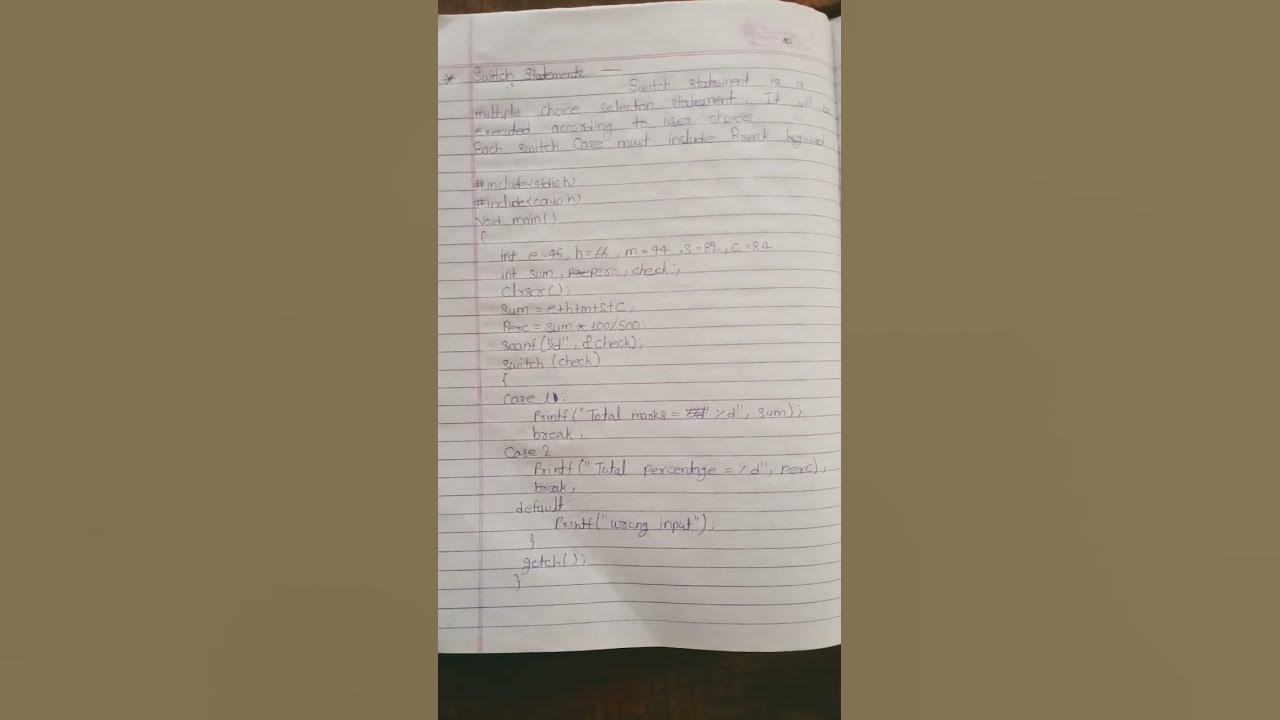 * Switch Statements :-
Switch statement is a
multiple choice selection statement. It will be
executed according to user choice
Each switch Case must include Break keyword
#include<stdio.h>
#include<conio.h>
Void main()
{
int e=45, h=66, m=44, s=89, c=84
int sum, perc, check;
clrscr();
sum = e+h+m+s+c;
Perc = sum * 100/500;
scanf("%d", &check);
switch (check)
{
Case 1:
Printf("Total marks = %d", sum);
break;
Case 2
Printf("Total percentage = %d", perc);
break;
default
Printf("wrong input");
}
getch();
}